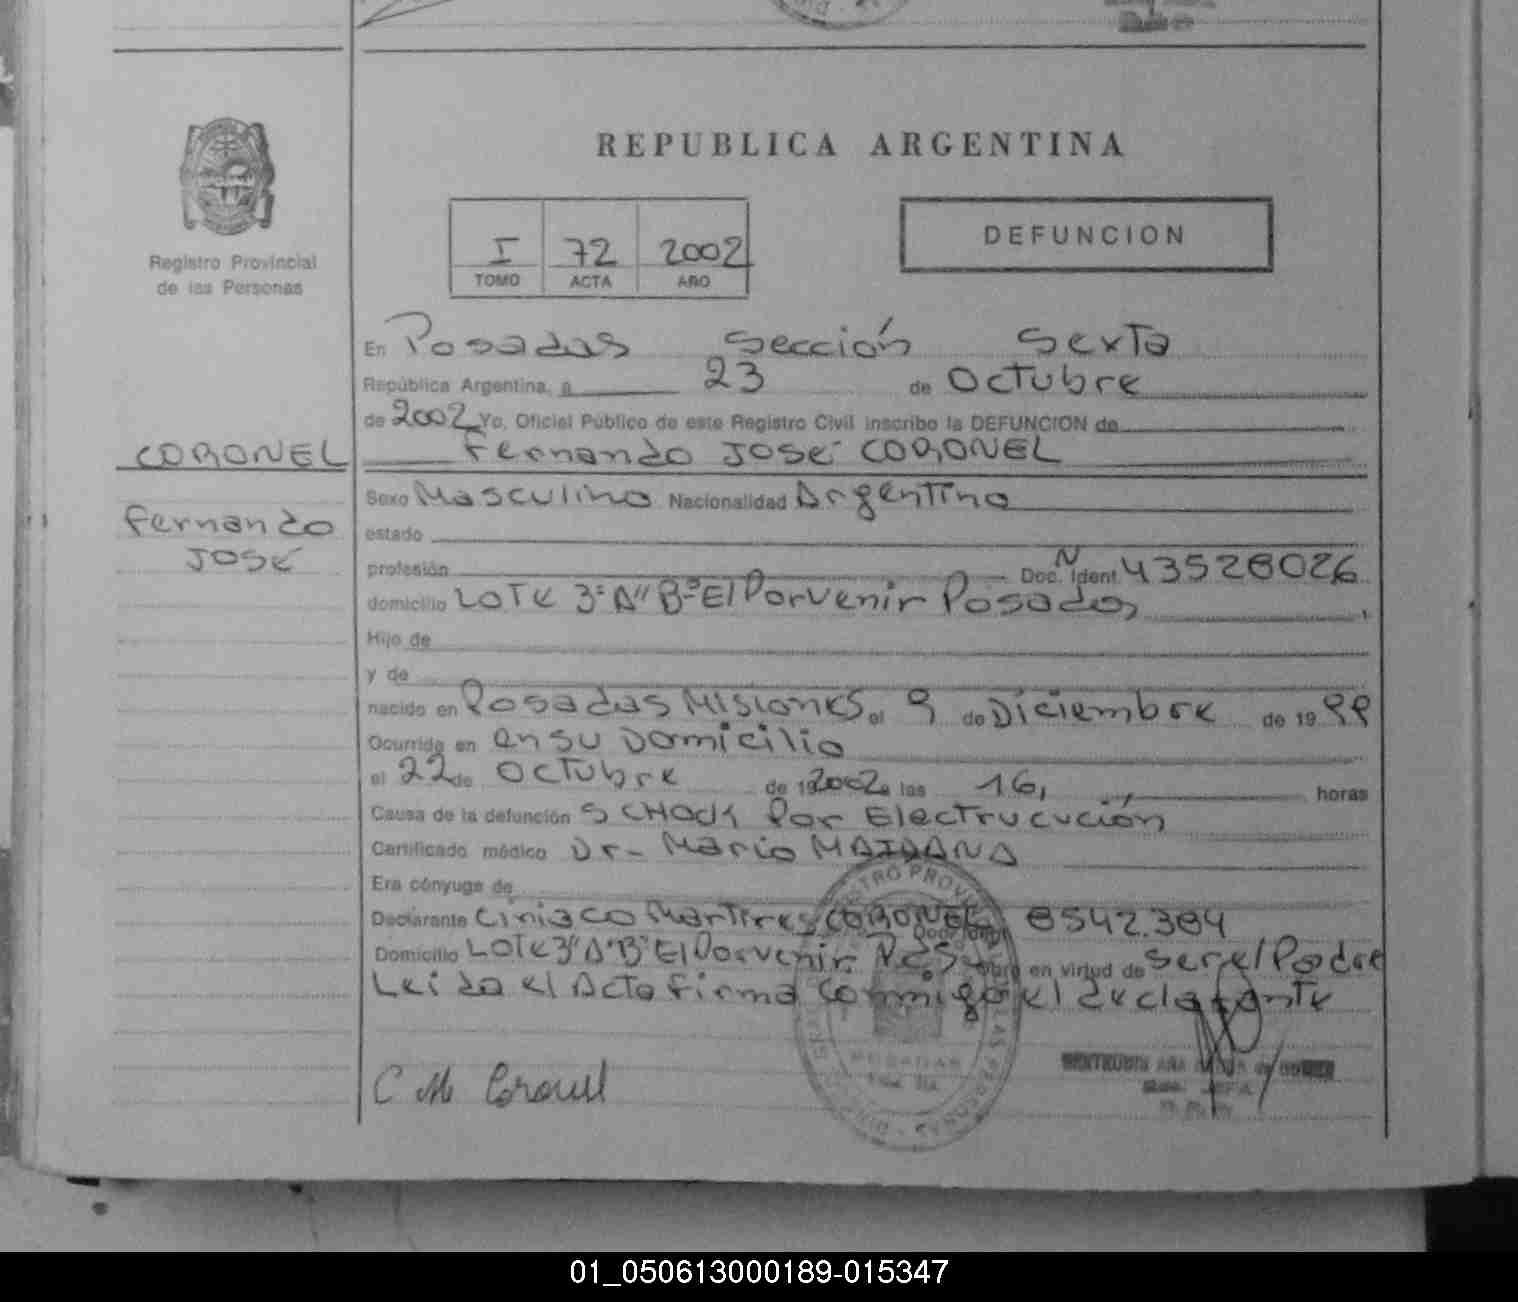 REPUBLICA ARGENTINA
Registro Provincial
de las Personas
I 72 2002
TOMO ACTA AÑO
DEFUNCION
En Posadas Sección Sexta
República Argentina, a 23 de Octubre
de 2002 Yo, Oficial Público de este Registro Civil inscribo la DEFUNCION de
CORONEL
Fernando José CORONEL
Fernando
José
Sexo Masculino Nacionalidad Argentino
estado
profesión Doc. Ident. N 43528026
domicilio Lote 3 "A" B° El Porvenir Posadas
Hijo de
y de
nacido en Posadas Misiones el 9 de Diciembre de 1999
Ocurrida en en su Domicilio
el 22 de Octubre de 19 2002 a las 16, horas
Causa de la defunción SCHOCK Por Electrucución
Certificado médico Dr- Mario MAIDANA
Era cónyuge de
Declarante Ciriaco Martires CORONEL Doc. Ident. 8542.384
Domicilio Lote 3 "A" B° El Porvenir Pdas obra en virtud de ser el Padre
Leida el Acta firma conmigo el declarante
C M Coronel
POSADAS
01_050613000189-015347